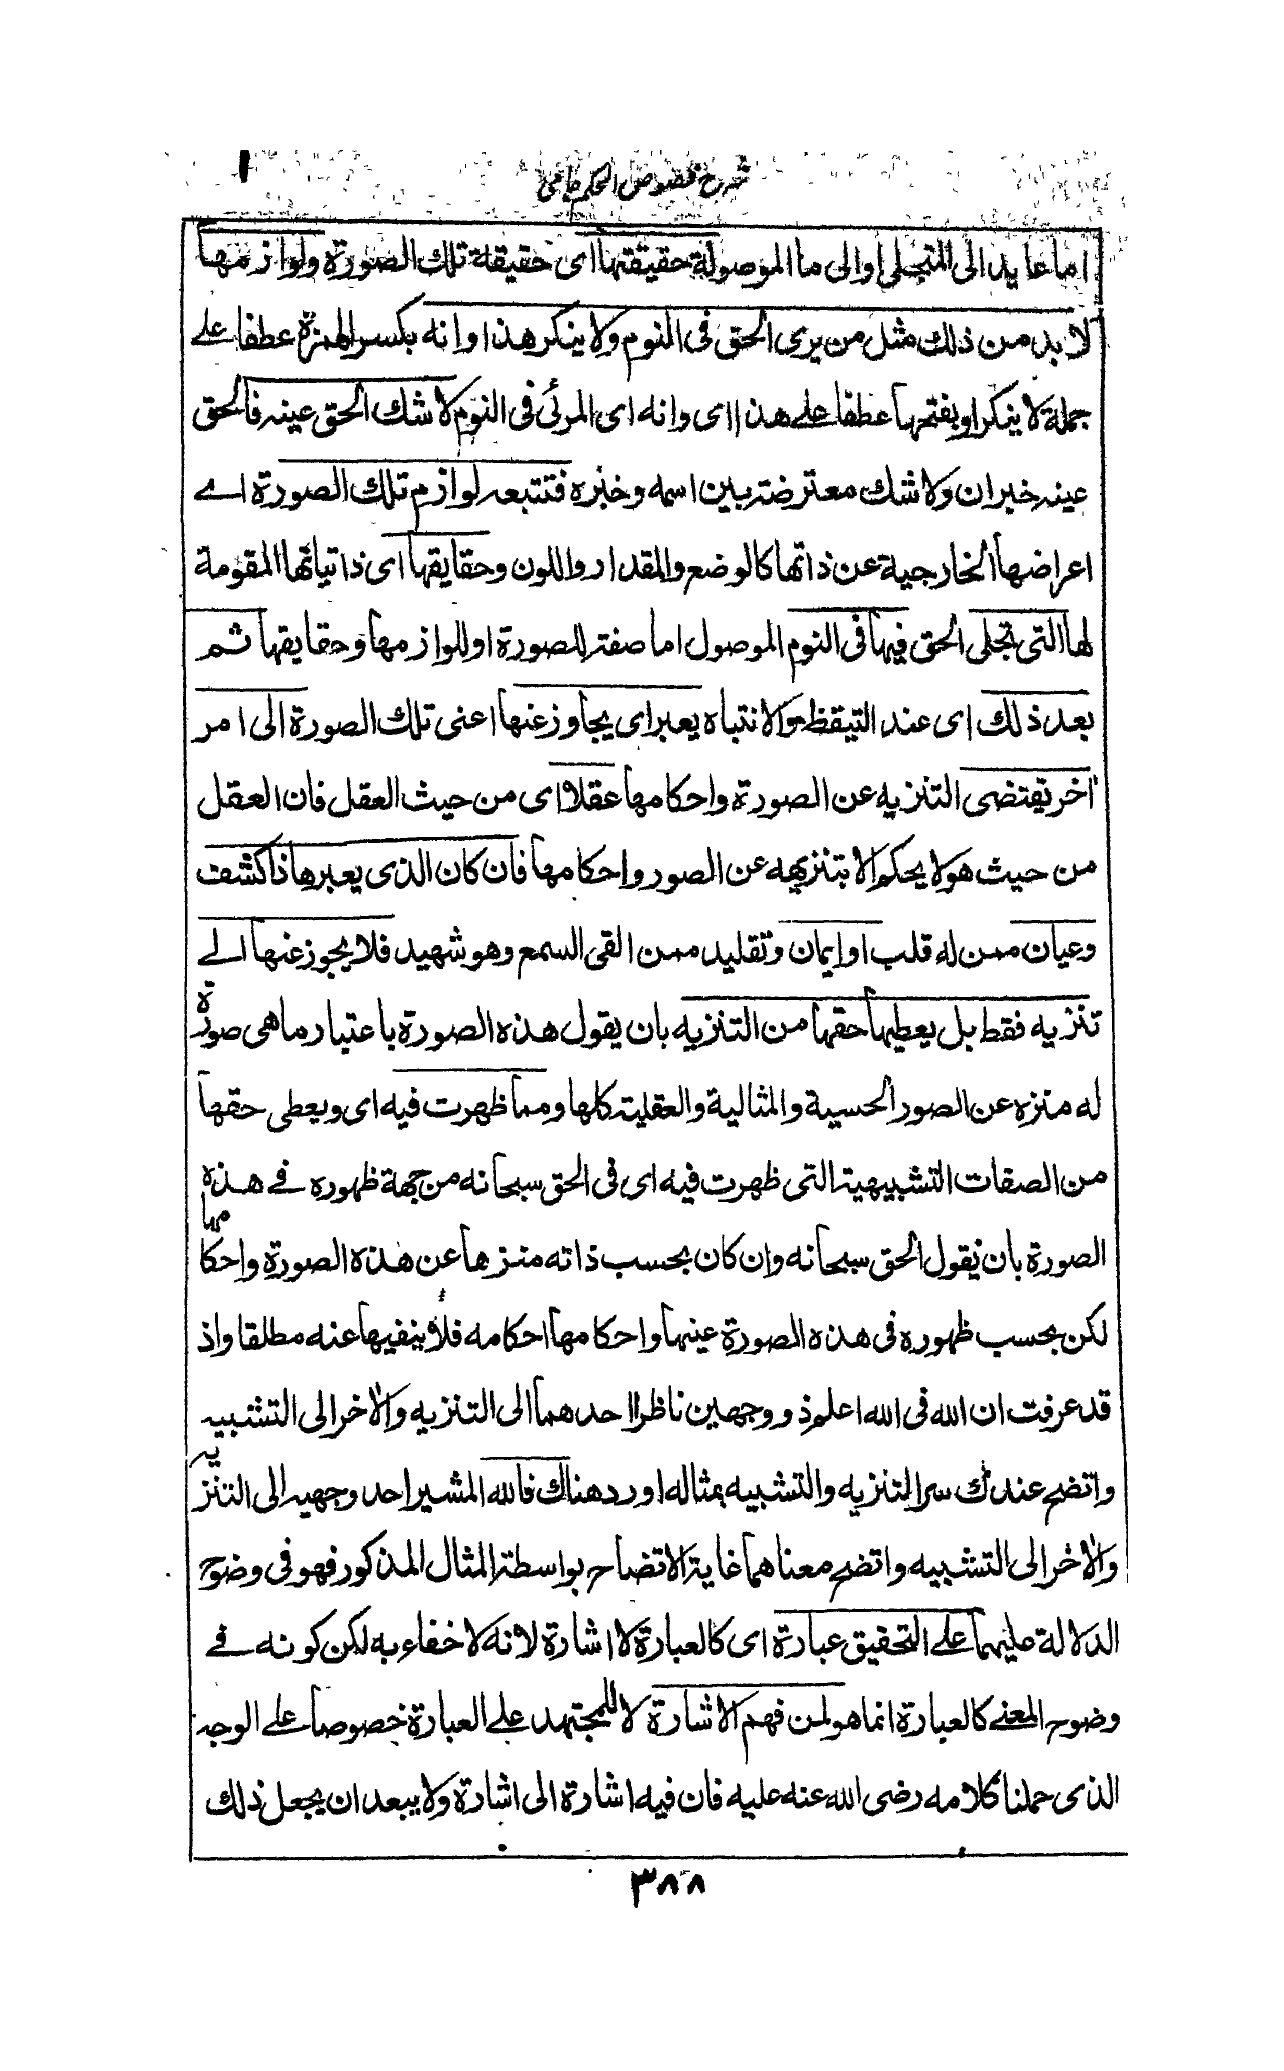 شرح فصوص الحكم جامى
اما عايد الى المتجلى او الى ما الموصولة حقيقتها اى حقيقة تلك الصورة ولوازمها
لا بد من ذلك مثل من يرى الحق فى النوم ولا ينكر هذا وانه بكسر الهمزة عطفا على
جملة لا ينكر او بفتحها عطفا على هذا اى وانه اى المرئى فى النوم لا شك الحق عينه فالحق
عينه خبر ان ولا شك معترضة بين اسمه وخبره فتتبعه لوازم تلك الصورة اے
اعراضها الخارجية عن ذاتها كالوضع والمقدار واللون وحقايقها اى ذاتياتها المقومة
لها التى تجلى الحق فيها فى النوم الموصول اما صفة للصورة او للوازمها وحقايقها ثم
بعد ذلك اى عند التيقظ والانتباه يعبر اى يجاوز عنها اعنى تلك الصورة الى امر
آخر تقتضى التنزيه عن الصورة واحكامها عقلا اى من حيث العقل فان العقل
من حيث هو لا يحكم الا بتنزيهه عن الصور واحكامها فان كان الذى يعبرها ذا كشف
وعيان ممن له قلب او ايمان وتقليد ممن القى السمع وهو شهيد فلا يجوز عنها الے
تنزيه فقط بل يعطيها حقها من التنزيه بان يقول هذه الصورة باعتبار ما هى صورة
له منزه عن الصور الحسية والمثالية والعقلية كلها ومما ظهرت فيه اى ويعطى حقها
من الصفات التشبيهية التى ظهرت فيه اى فى الحق سبحانه من جهة ظهوره فے هذه
الصورة بان يقول الحق سبحانه وان كان بحسب ذاته منزها عن هذه الصورة واحكامها
لكن بحسب ظهوره فى هذه الصورة عينها واحكامها احكامه فلا ينفيها عنه مطلقا واذ
قد عرفت ان الله فى الله اعلم ذو وجهين ناظرا احدهما الى التنزيه والآخر الى التشبيه
واتضح عندك سر التنزيه والتشبيه بمثاله اورد هناك فالله المشير احد وجهيه الى التنزيه
والآخر الى التشبيه واتضح معناهما غاية الاتضاح بواسطة المثال المذكور فهو فى وضوح
الدلالة عليهما على التحقيق عبارة اى كالعبارة لا اشارة لانه لا خفاء به لكن كونه فے
وضوح المعنى كالعبارة انما هو لمن فهم الاشارة لا للمجتهد على العبارة خصوصا على الوجه
الذى حملنا كلامه رضى الله عنه عليه فان فيه اشارة الى اشارة ولا يبعد ان يجعل ذلك
٣٨٨